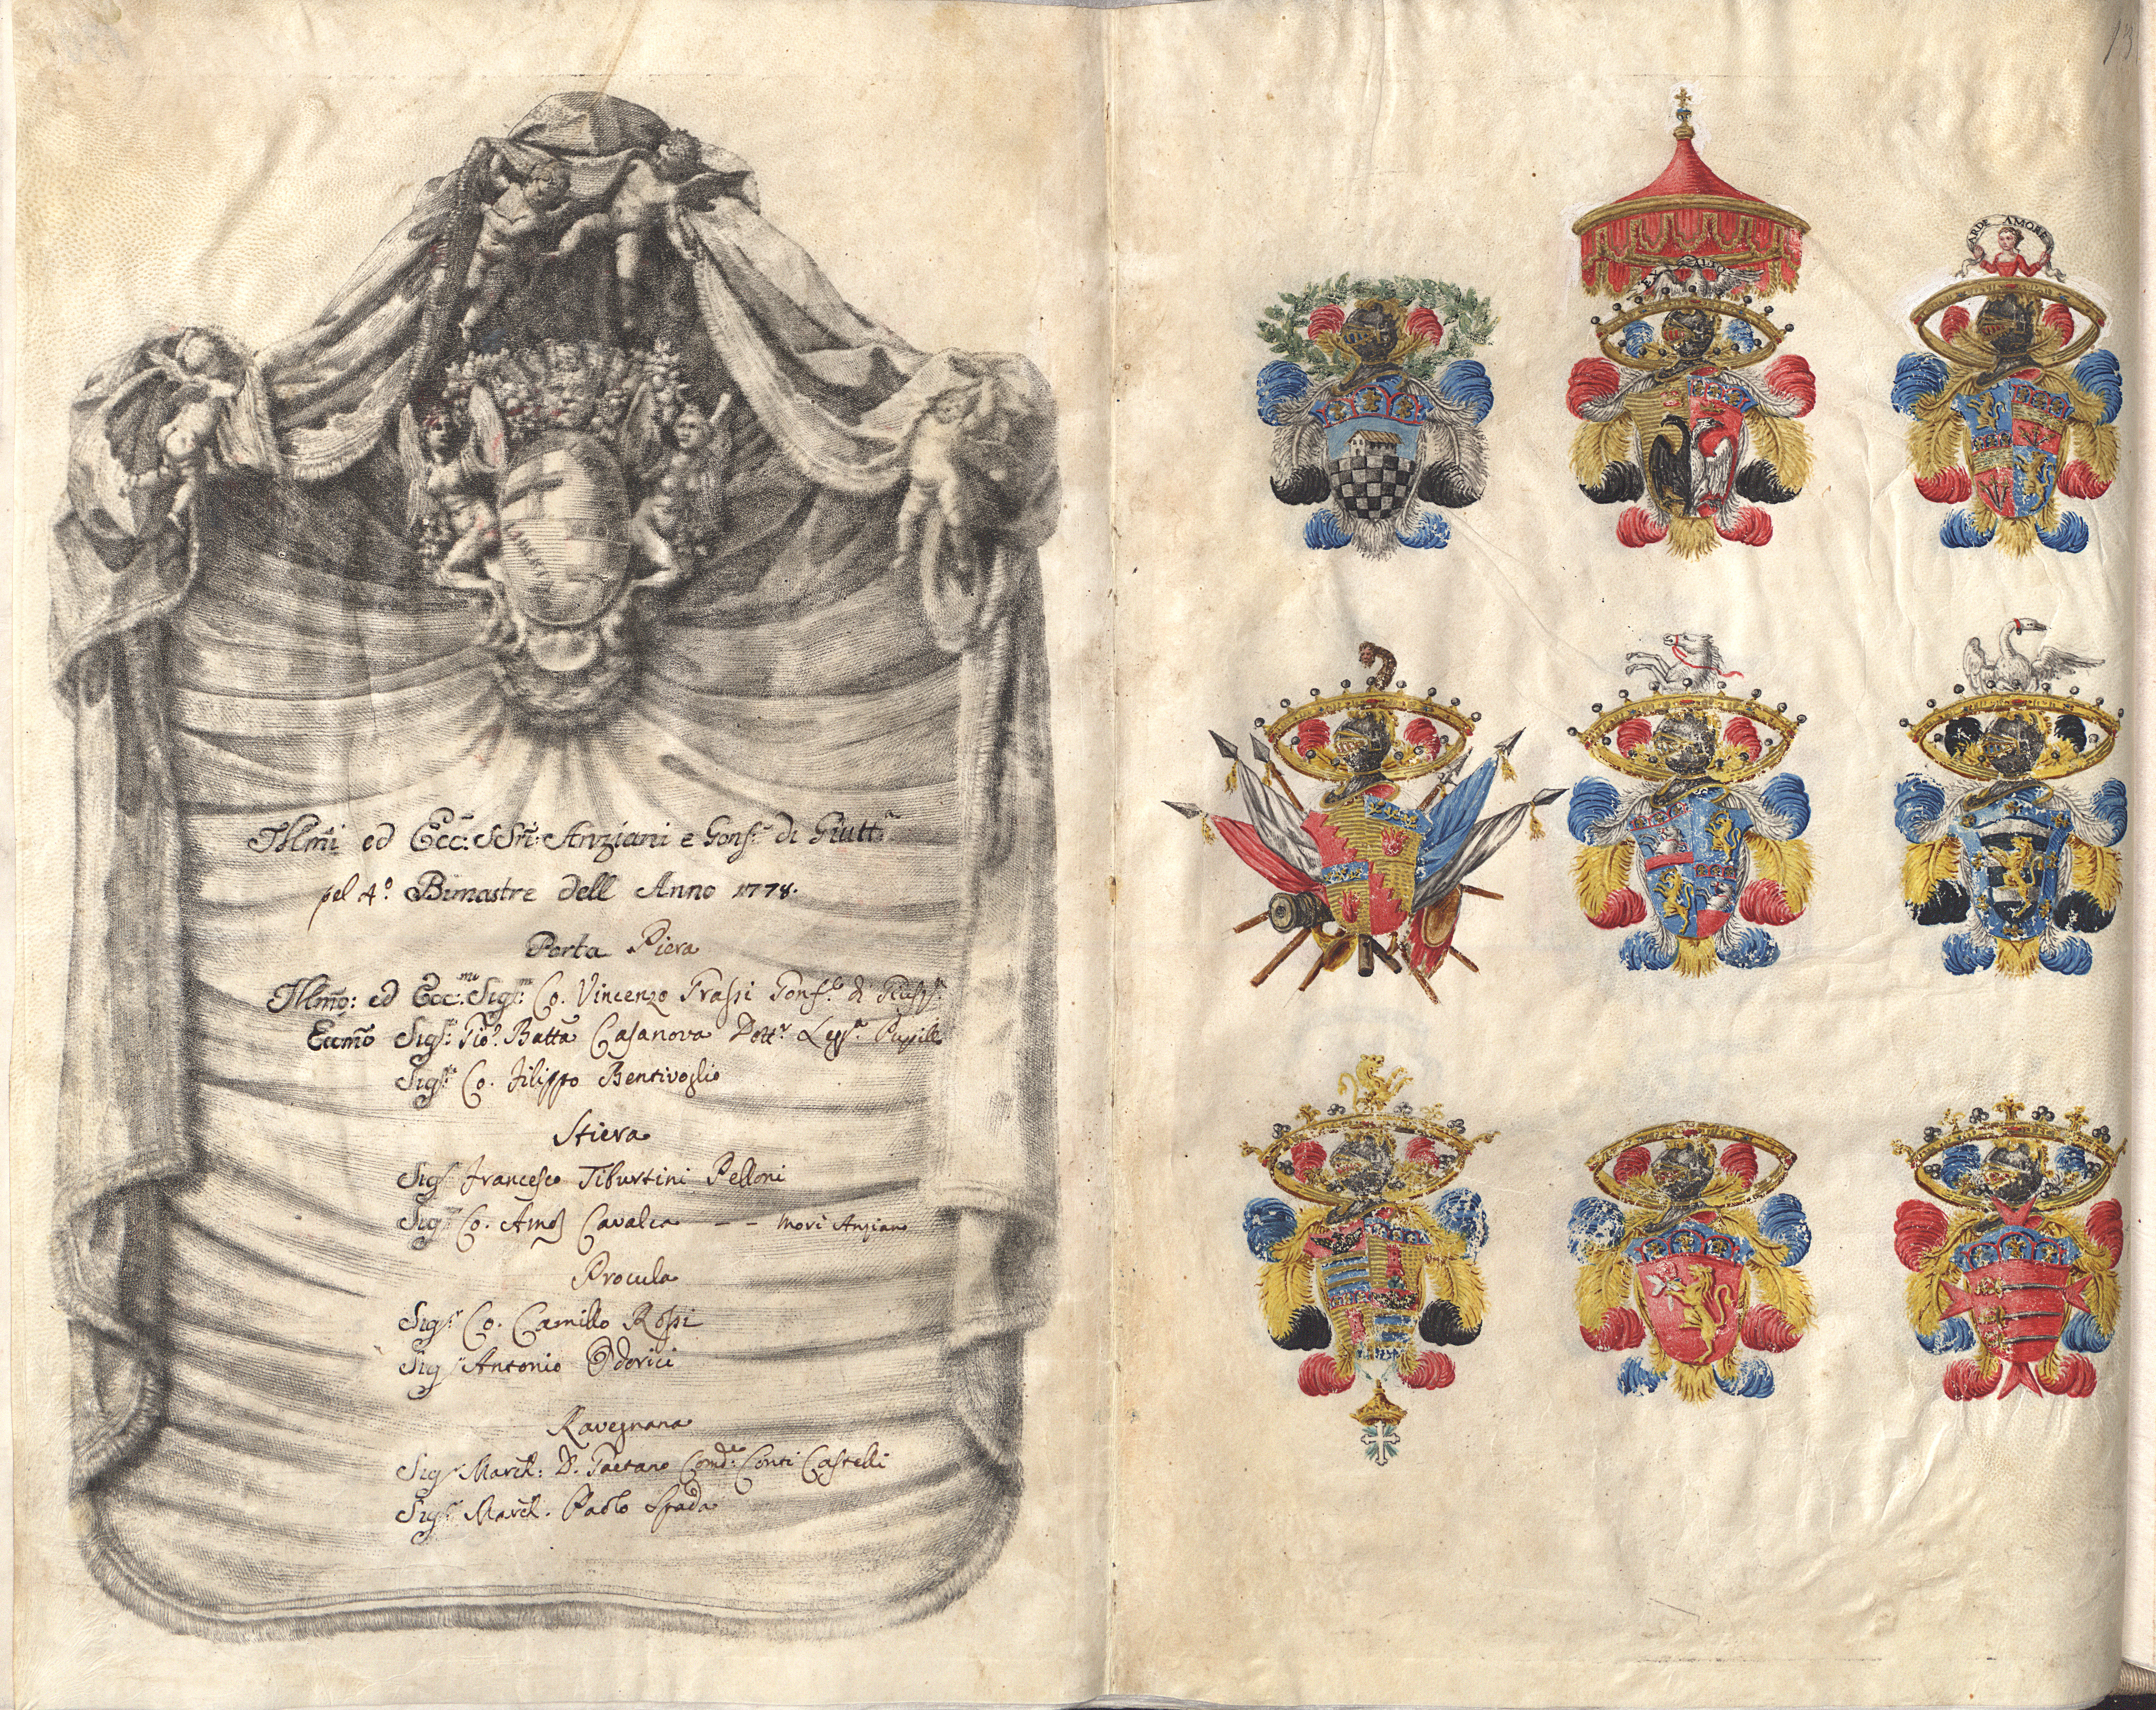 Illm̃i ed Ecc: SSri: Anziani e Gonf.r di Giutt.a
pel 4.o Bimastre dell Anno 1778.
Porta Piera
Illm̃o: ed Ecc:mo Sig.r Co. Vincenzo Grassi Gonf.e di Giust.a
Eccm̃o Sig.r Gio. Batta Casanova Dott.r Legg.a Pupill
Sig.r Co. Filippo Bentivoglio
Stiera
Sig.r Francesco Tiburtini Pelloni
Sig.r Co. Cavalca - - morì Anziano
Procula
Sig.r Co. Camillo Rossi
Sig.r Antonio Odorici
Ravegnana
Sig.r March: D. Gaetano Comd.e Conti Castelli
Sig.r March. Paolo Spada
LIBERTAS
13
ARDE AMORE
EX ALTO